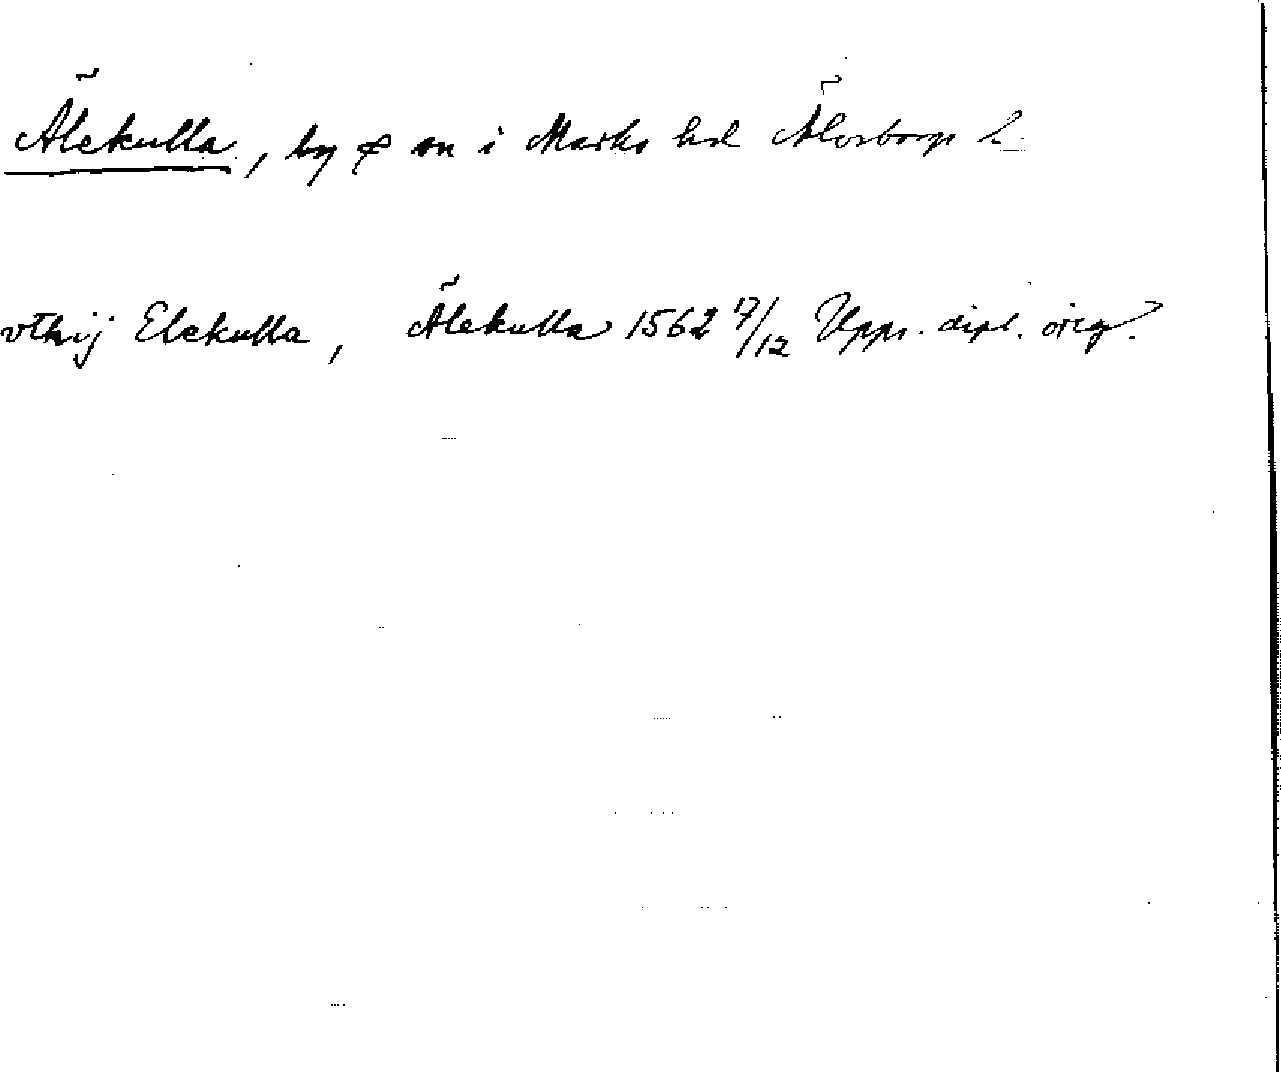 Älekulla, by & sn i Marks hd Älvsborgs l
vthij Elekulla, Älekulla 1562 17/12 Upps. dipl. orig.